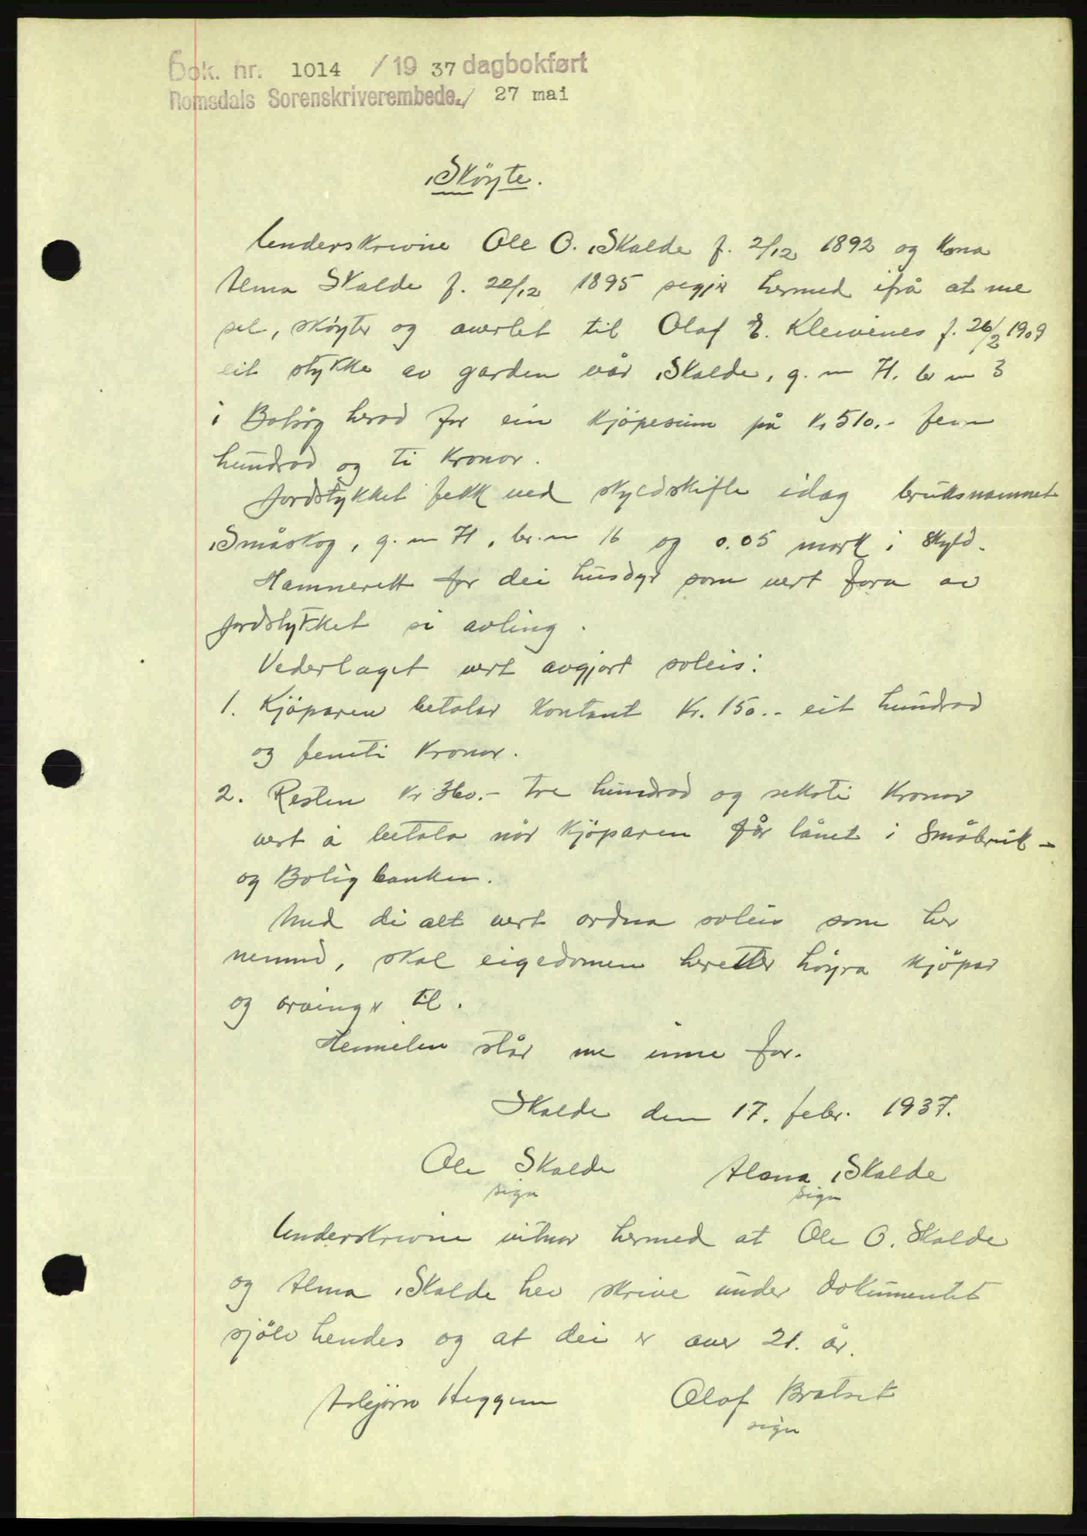 Dok. nr. 1014 / 19 37 dagbokført
Romsdals Sorenskriverembede / 27 mai
Sköyte.
Underskrivne Ole O. Skalde f. 2/12 1892 og Kona
Alma Skalde f. 22/12 1895 segjer hermed ifrå at me
sel, sköyter og averlet til Olaf E. Kleivenes f. 26/2 1909
eit stykke av garden vår Skalde, g. n 71. br n 3
i Bolsöy herad for ein Kjöpesum på Kr 510.- fem
hundrad og ti Kronor.
Jordstykket fekk ved skyldskifte idag bruksnamnet
Småskog, g. n 71, br. n 16 og 0.05 mark i skyld.
Hamnerett for dei husdyr som vert fora av
jordstykket si avling.
Vederlaget vert avgjort soleis:
1. Kjöparen betalar Kontant Kr. 150.- eit hundrad
og femti Kronor.
2. Resten Kr 360.- tre hundrad og seksti Kronor
vert å betala når Kjöparen får lånet i Småbruk-
og Boligbanken.
Med di alt vert ordna soleis som her
nemnd, skal eigedomen heretter höyra Kjöpar
og arvinger til.
Heimelen står me inne for.
Skalde den 17. febr. 1937.
Ole Skalde Alma Skalde
sign sign
Underskrivne vitnar hermed at Ole O. Skalde
og Alma Skalde hev skrive under dokumentet
sjölv hendes og at dei er over 21. år.
Asbjörn Heggem Olaf Bratset
sign